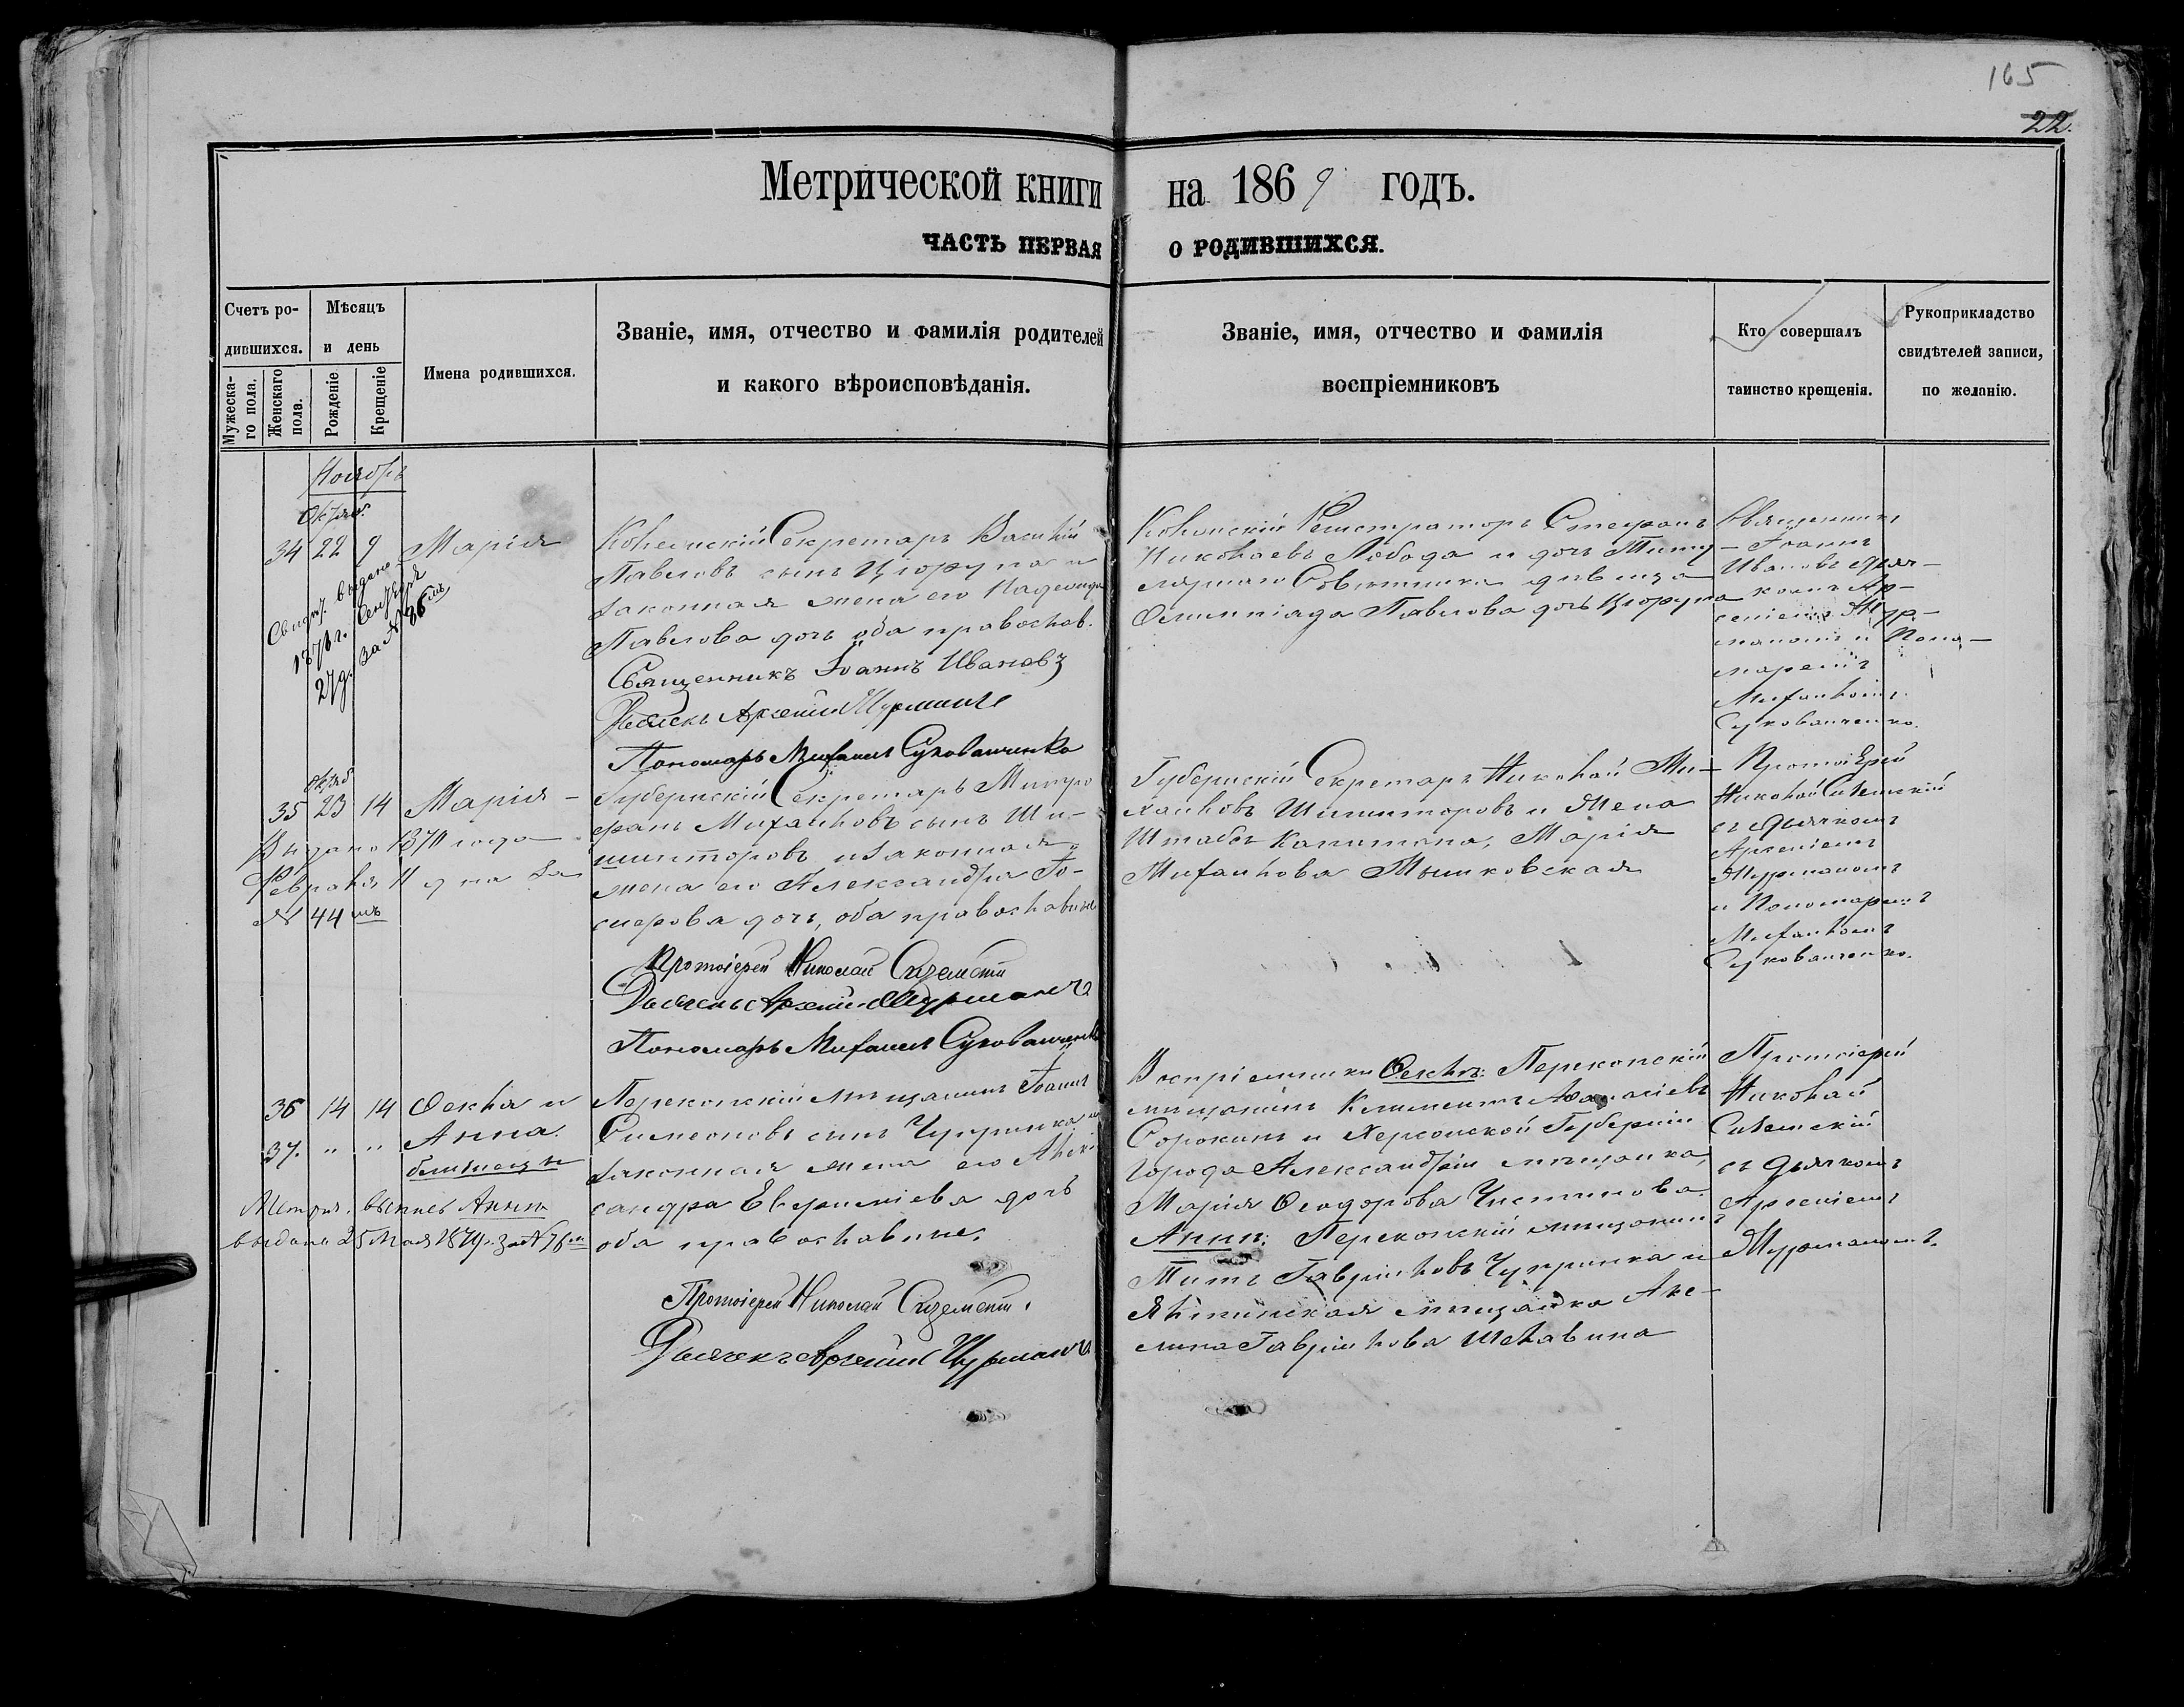 165
22.
Метрической книги на 1869 годъ.
ЧАСТЬ ПЕРВАЯ О РОДИВШИХСЯ.
Счетъ ро-
дившихся.
Мѣсяцъ
и день
Мужеска-
го пола.
Женскаго
пола.
Рожденіе
Крещеніе
Имена родившихся.
Званіе, имя, отчество и фамилія родителей
и какого вѣроисповѣданія.
Званіе, имя, отчество и фамилія
воспріемниковъ
Кто совершалъ
таинство крещенія.
Рукоприкладство
свидѣтелей записи,
по желанію.
Ноябрь
Октяб.
34 22 9 Марія
Свидѣт. выдано
187 г. Сентября
27 д. за № 36мъ
Колежскій Секретарь Василій
Павловъ сынъ Цюрупа и
законная жена его Надежда
Павлова дочь оба православ.
Священникъ Іоаннъ Ивановъ
Дьячекъ Арсеній Мурманъ
Пономарь Михаилъ Суховатченко
Колежскій Регистраторъ Стефанъ
Николаевъ Лобода и дочь Титу-
лярнаго Совѣтника дѣвица
Олимпіада Павлова дочь Цюрупа
Священникъ
Іоаннъ
Ивановъ съ дьяч-
комъ Ар-
сеніемъ Мур-
маномъ и Поно-
маремъ
Михаиломъ
Суховатченко.
Октяб
35 23 14 Марія
Выдано 1870 года
Февраля 11 дня за
№ 44мъ
Губернскій Секретарь Митро
фанъ Михайловъ сынъ Ши-
шиторовъ и законная
жена его Александра Іо-
сифова дочь, оба православные
Протоіерей Николай
Дьячекъ Арсеній Мурманъ
Пономарь Михаилъ Суховатченко
Губернскій Секретарь Николай Ми-
хайловъ Шишиторовъ и Жена
Штабсъ Капитана, Марія
Михайлова Мышковская
Протоіерей
Николай
съ Дьячкомъ
Арсеніемъ
Мурманомъ
и Пономаремъ
Михаиломъ
Суховатченко.
36 14 14 Ѳекла и
37. " " Анна.
близнецы
Метрич. выпись Анны
выдана 25 Мая 1879 г. за № 76мъ
Перекопскій мѣщанинъ Іоаннъ
Симеоновъ сынъ Чупринка и
законная жена его Алек
сандра Евфиміева дочь
оба православные.
Протоіерей Николай
Дьячекъ Арсеній Мурманъ
Воспріемники Ѳеклы: Перекопскій
мѣщанинъ Климентъ Аѳанасіевъ
Сорокинъ и Херсонской Губерніи
города Александріи мѣщанка,
Марія Ѳеодорова Чистикова.
Анны: Перекопскій мѣщанинъ
Титъ Гавріиловъ Чупринка и
Ялтинская мѣщанка Аке-
лина Гавріилова Шелавина
Протоіерей
Николай
съ Дьячкомъ
Арсеніемъ
Мурманомъ.